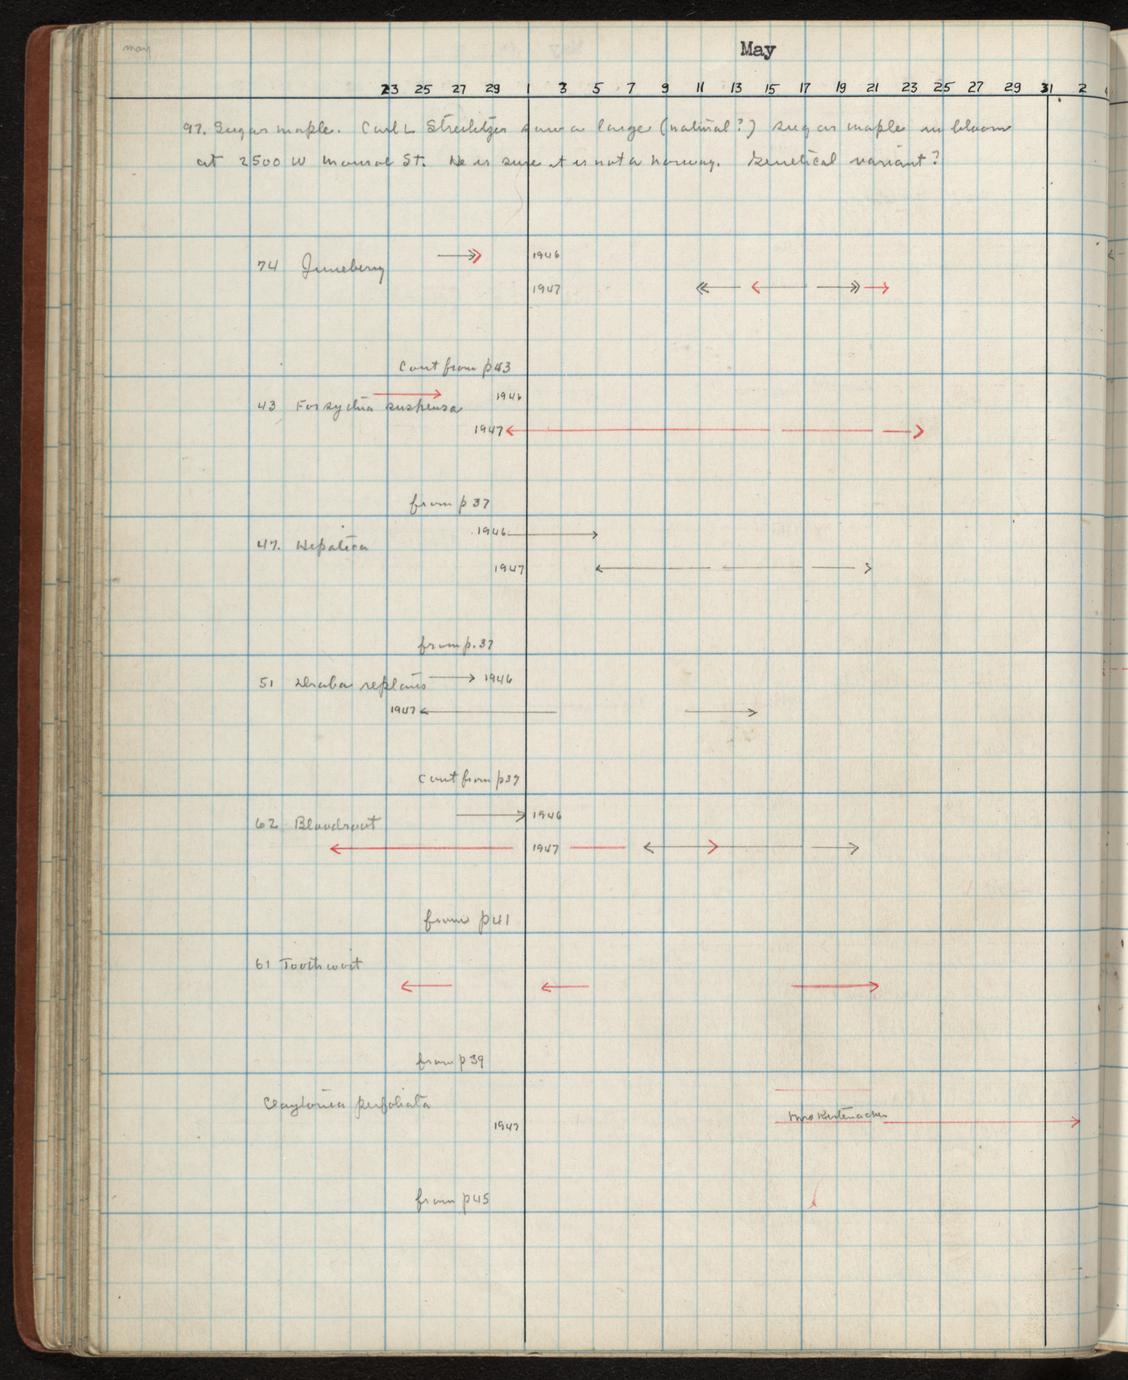 may
May
23 25 27 29 1 3 5 7 9 11 13 15 17 19 21 23 25 27 29 31 2
97. Sugar maple. Carl L saw a large (natural?) sugar maple in bloom
at 2500 W St. He is sure it is not a Norway. Genetical variant?
1946
74 Juneberry
1947
Cont from p43
1946
43 Forsythia suspensa
1947
from p 37
1946
47. Hepatica
1947
from p. 37
51 Draba reptans 1946
1947
Cont from p37
1946
62 Bloodroot
1947
from p41
61 Toothwort
from p39
Claytonia perfoliata
1947
from p45